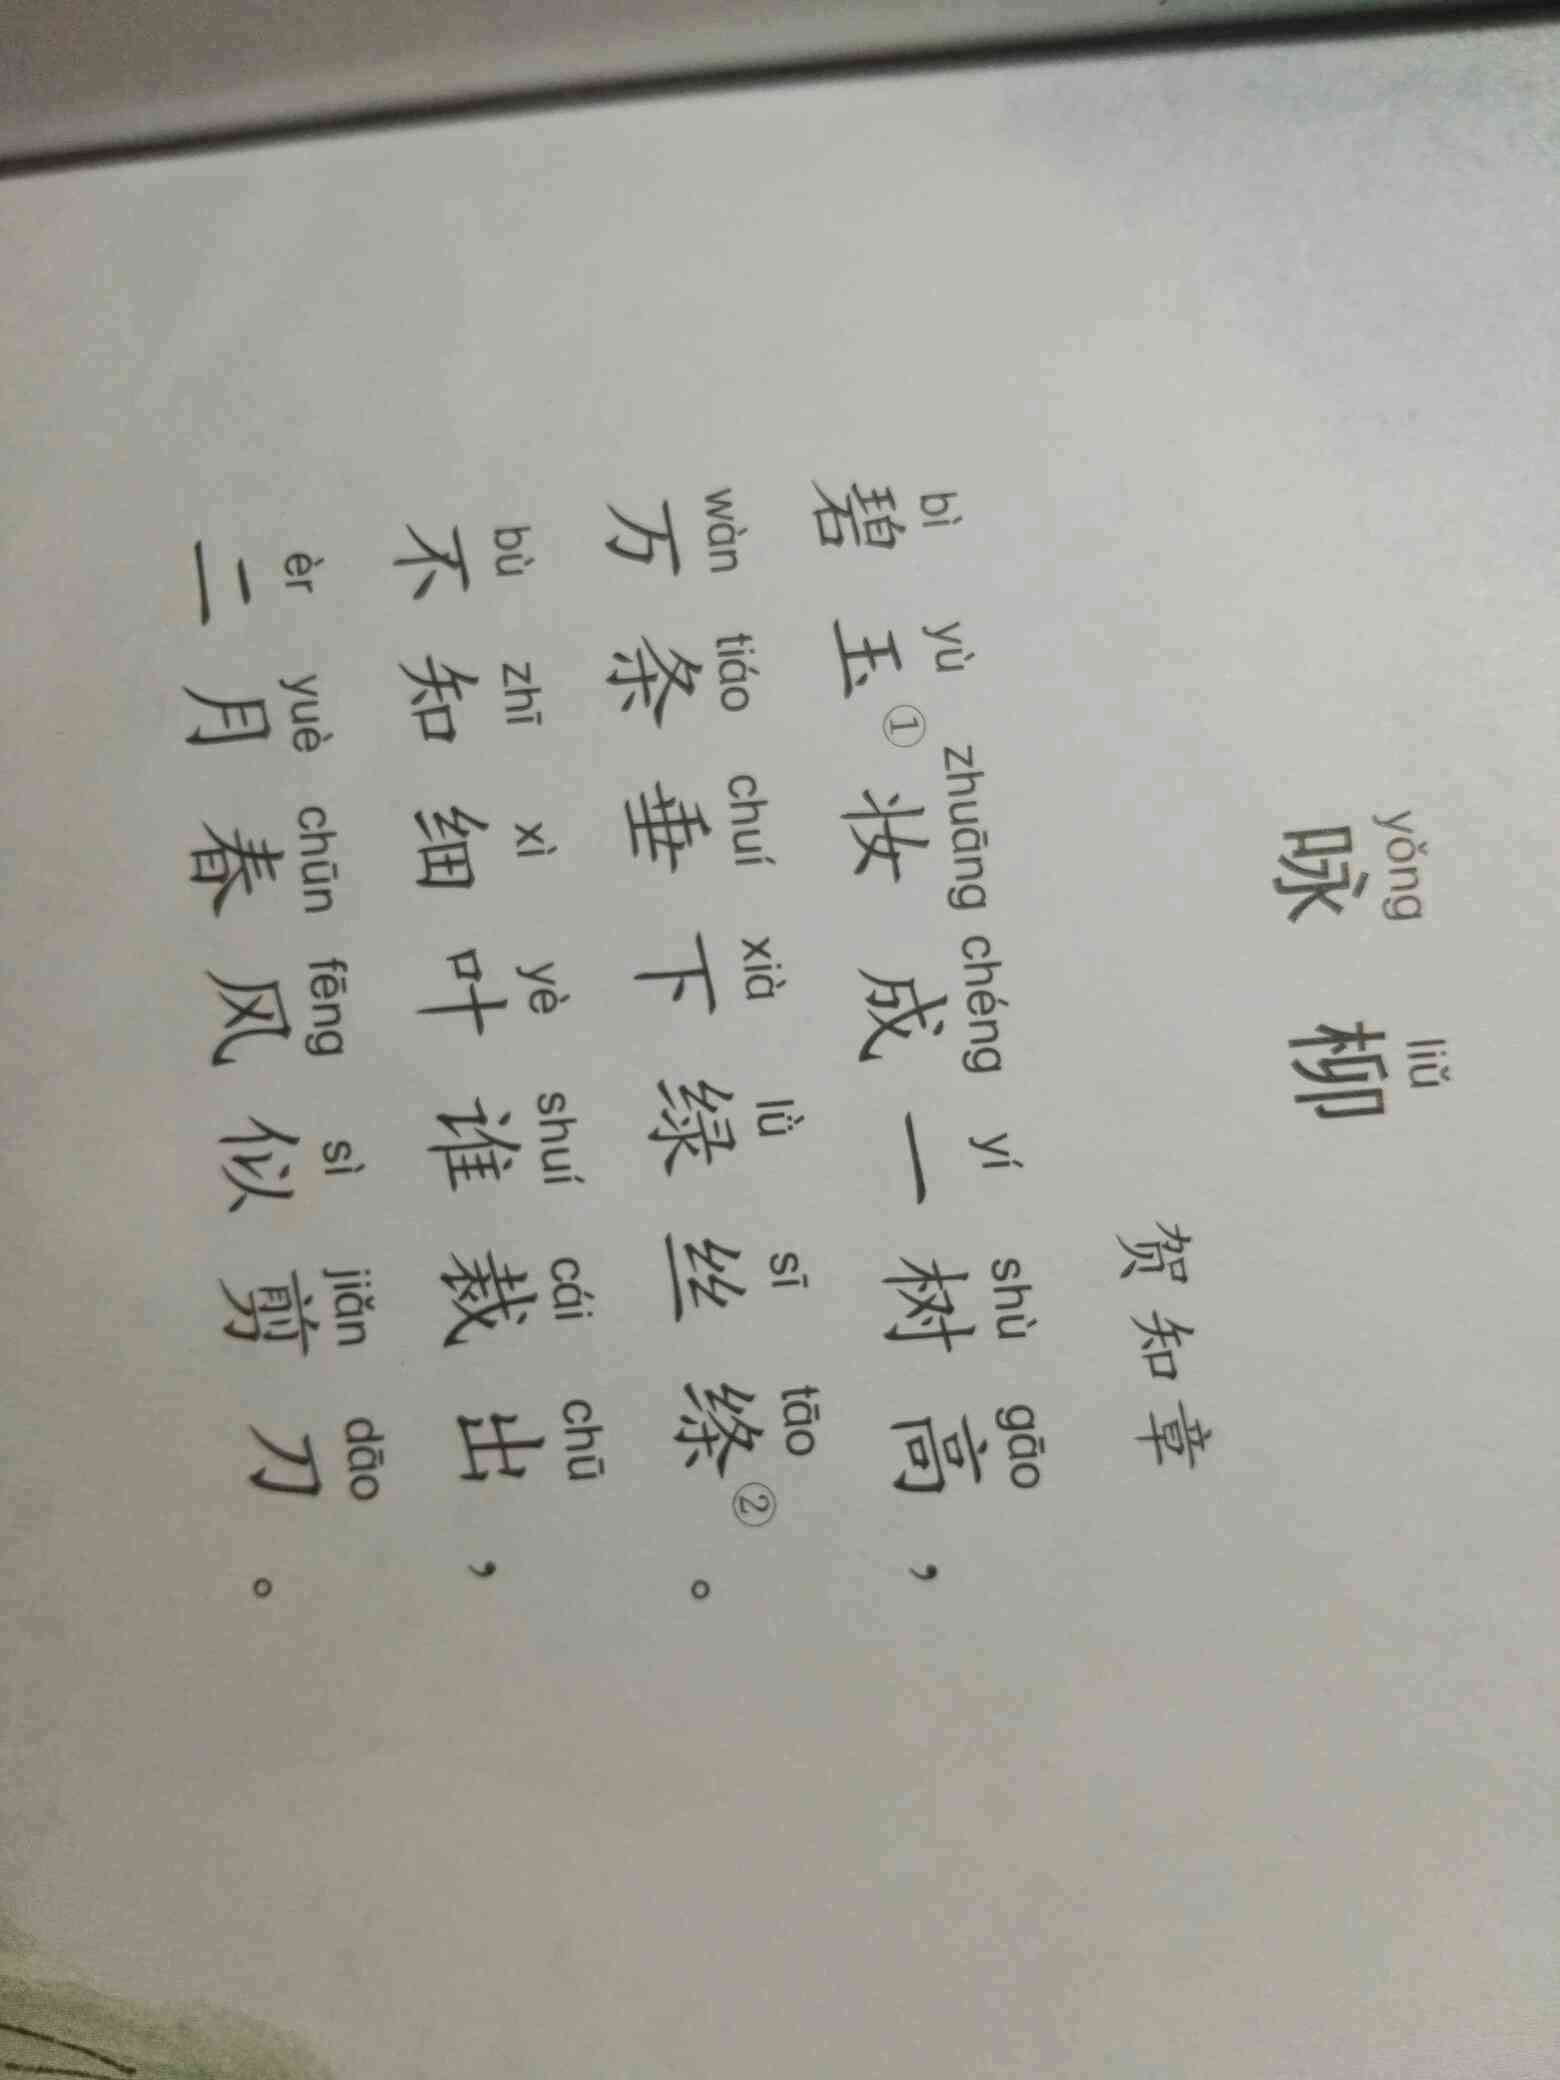 yǒng liǔ
咏 柳
贺知章
bì yù zhuāng chéng yí shù gāo
碧玉①妆成一树高，
wàn tiáo chuí xià lǜ sī tāo
万条垂下绿丝绦②。
bù zhī xì yè shuí cái chū
不知细叶谁裁出，
èr yuè chūn fēng sì jiǎn dāo
二月春风似剪刀。